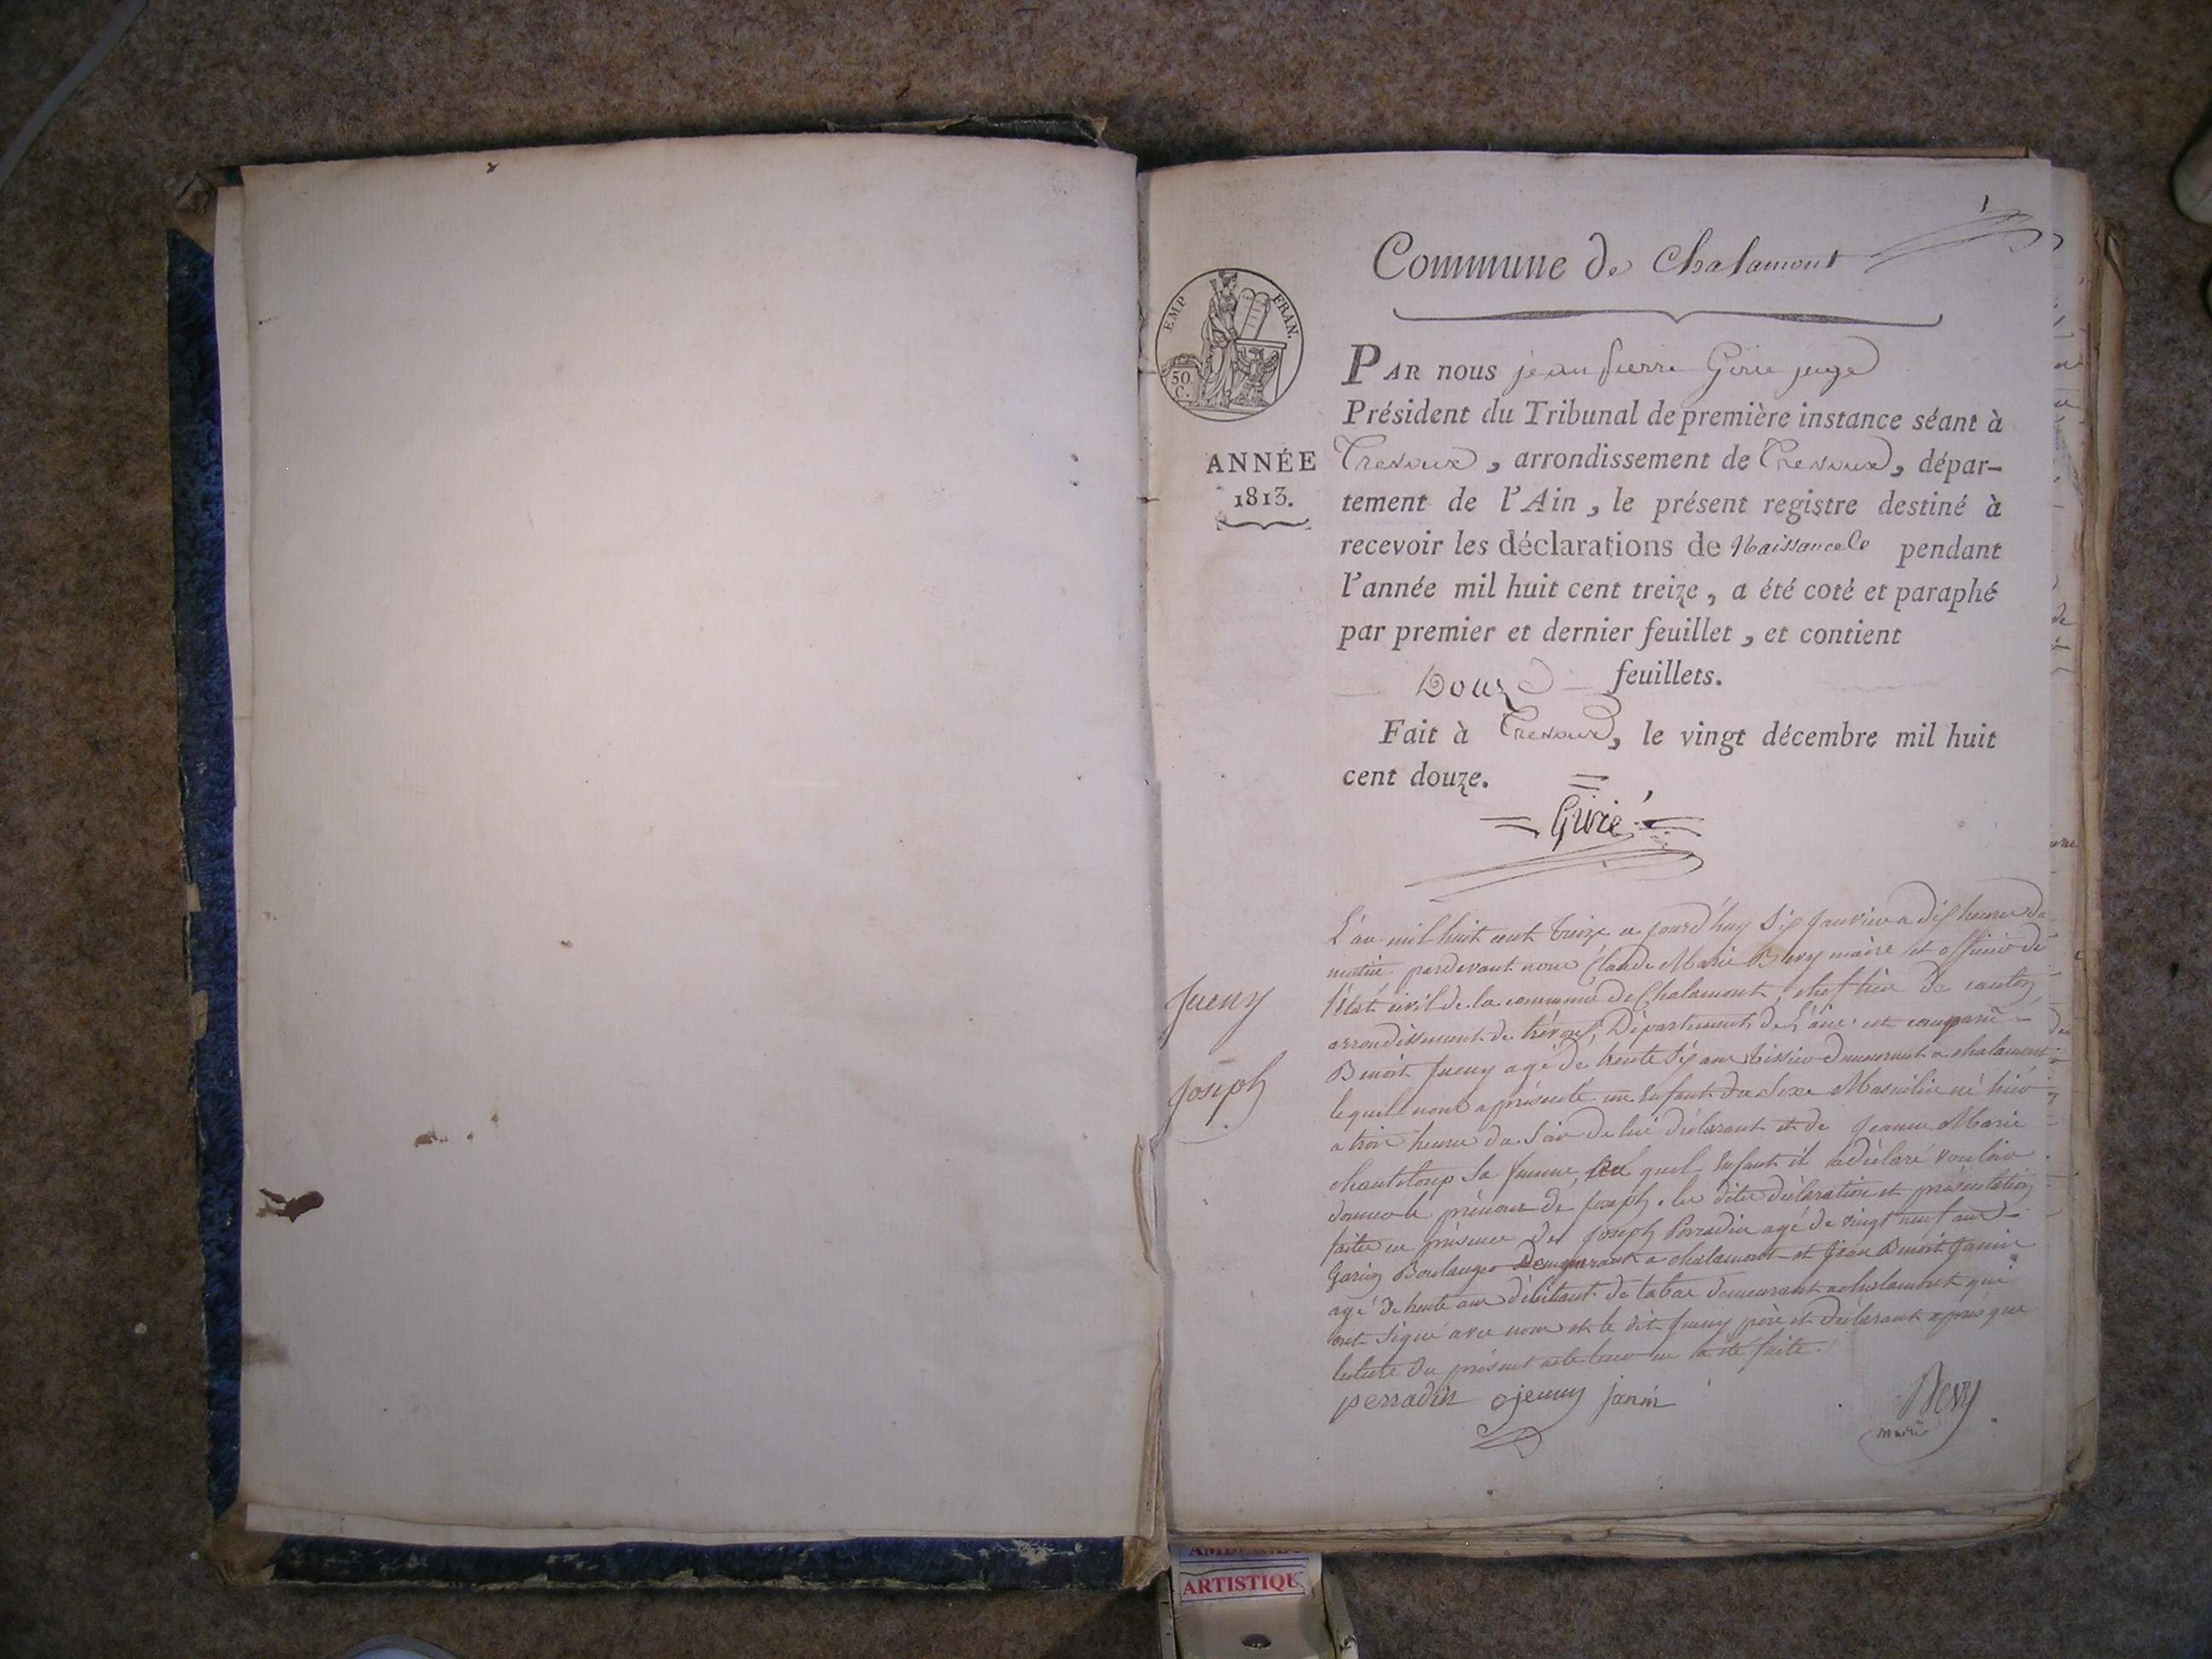 1
Commune de Chalamont
EMP FRAN.
50 C.
ANNÉE
1813.
PAR nous jean pierre Girié juge
Président du Tribunal de première instance séant à
Trevoux, arrondissement de Trevoux, dépar-
tement de l'Ain, le présent registre destiné à
recevoir les déclarations de Naissance pendant
l'année mil huit cent treize, a été coté et paraphé
par premier et dernier feuillet, et contient
Douze feuillets.
Fait à Trevoux, le vingt décembre mil huit
cent douze.
Girié
Jueny
Joseph
L'an mil huit cent treize a jourd'huy Six Janvier a dix heures du
matin pardevant nous Claude Marie Bevy maire et officier de
l'état civil de la commune de Chalamont, chef lieu de canton
arrondissement de trévoux, Département de L'ain est comparu
Benoit Jueny agé de trente Six ans tissier demeurant a chalamont
lequel nous a présenté un Enfant du Sexe Masculin né hier
a trois heures du Soir de lui déclarant et de Jeanne Marie
chanteloup Sa femme, au quel Enfant il a déclaré vouloir
donner le prénom de Joseph. les dites déclaration et présentation
faites en présence de Joseph Perradin agé de vingt neuf ans
Garçon Boulanger Demeurant a chalamont et Jean Benoit Janin
agé de trente ans débitant de tabac demeurant a chalamont qui
ont Signé avec nous et le dit Jueny père et déclarant après que
lecture du présent acte leur en a été faite.
perradin jeuny janin
Bevy
maire
ARTISTIQU